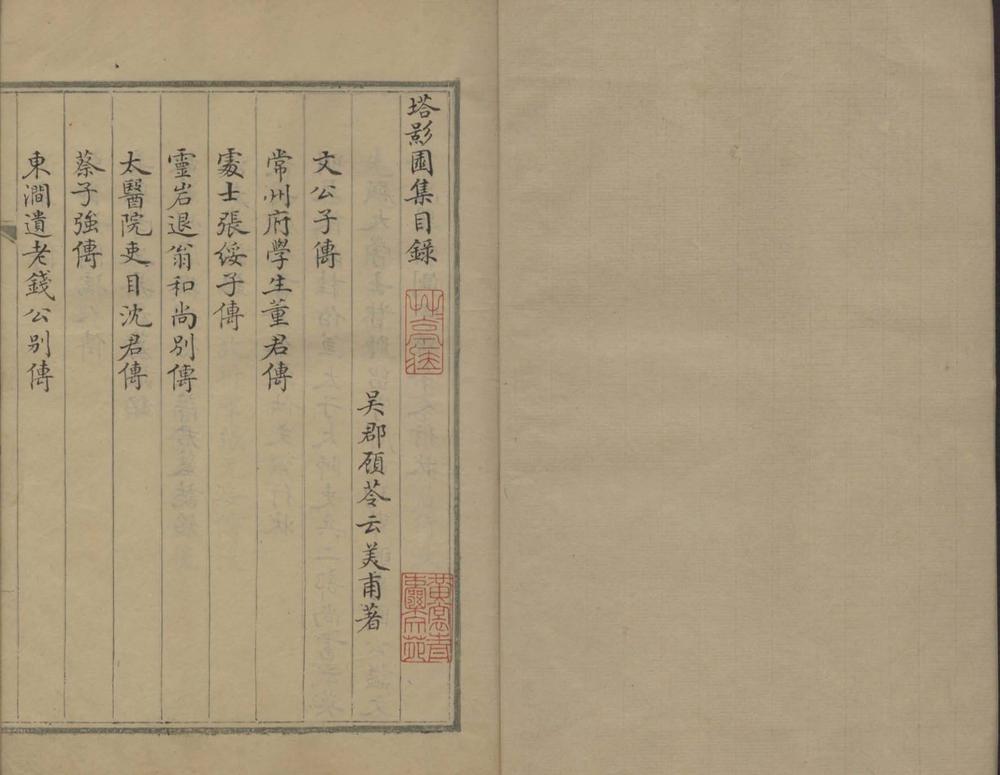 塔影園集目錄
吴郡顾苓云美甫著
文公子傳
常州府學生董君傳
處士張綏子傳
靈岩退翁和尚别傳
太醫院吏目沈君傳
蔡子強傳
東澗遺老錢公别傳